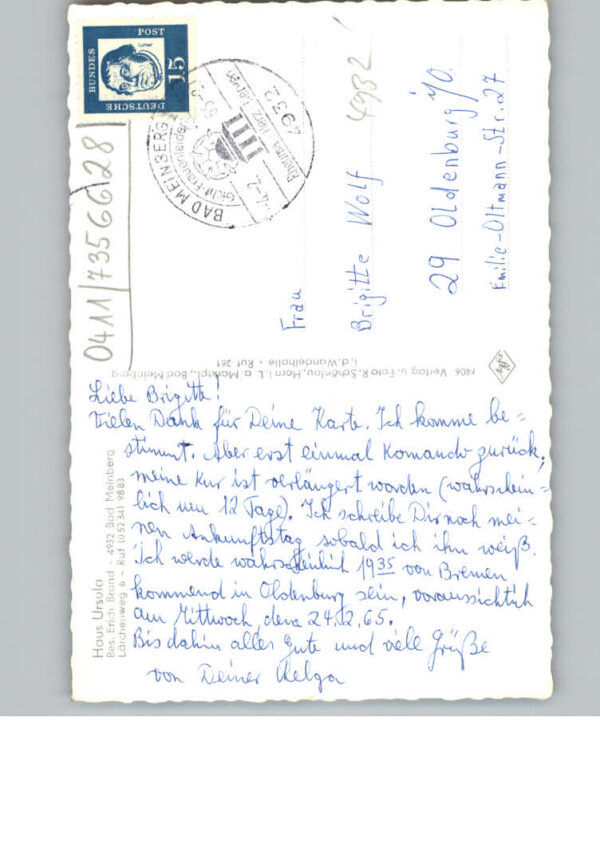 Liebe Brigitte!
Vielen Dank für Deine Karte. Ich komme be=
stimmt. Aber erst einmal Komando zurück,
meine Kur ist verlängert worden (wahrschein=
lich um 12 Tage). Ich schreibe Dir noch mei=
nen Ankunftstag sobald ich ihn weiß.
Ich werde wahrscheinlich 19 35 von Bremen
kommend in Oldenburg sein, voraussichtlich
am Mittwoch, den 24.2.65.
Bis dahin alles Gute und viele Grüße
von Deiner Helga
Frau
Brigitte Wolf
29 Oldenburg i/O.
Emilie-Oltmann-Str. 27
4932
0411/7356628
DEUTSCHE
BUNDES
POST
Luther
15
BAD MEINBERG
4932
Rheuma Herz
Haus Ursula
Bes. Erich Brand - 4932 Bad Meinberg
Lärchenweg 6 - Ruf (05234) 9883
r406 Verlag u. Foto R. Schönlau, Horn i. L. a. Marktpl., Bad Meinberg
i. d. Wandelhalle · Ruf 261